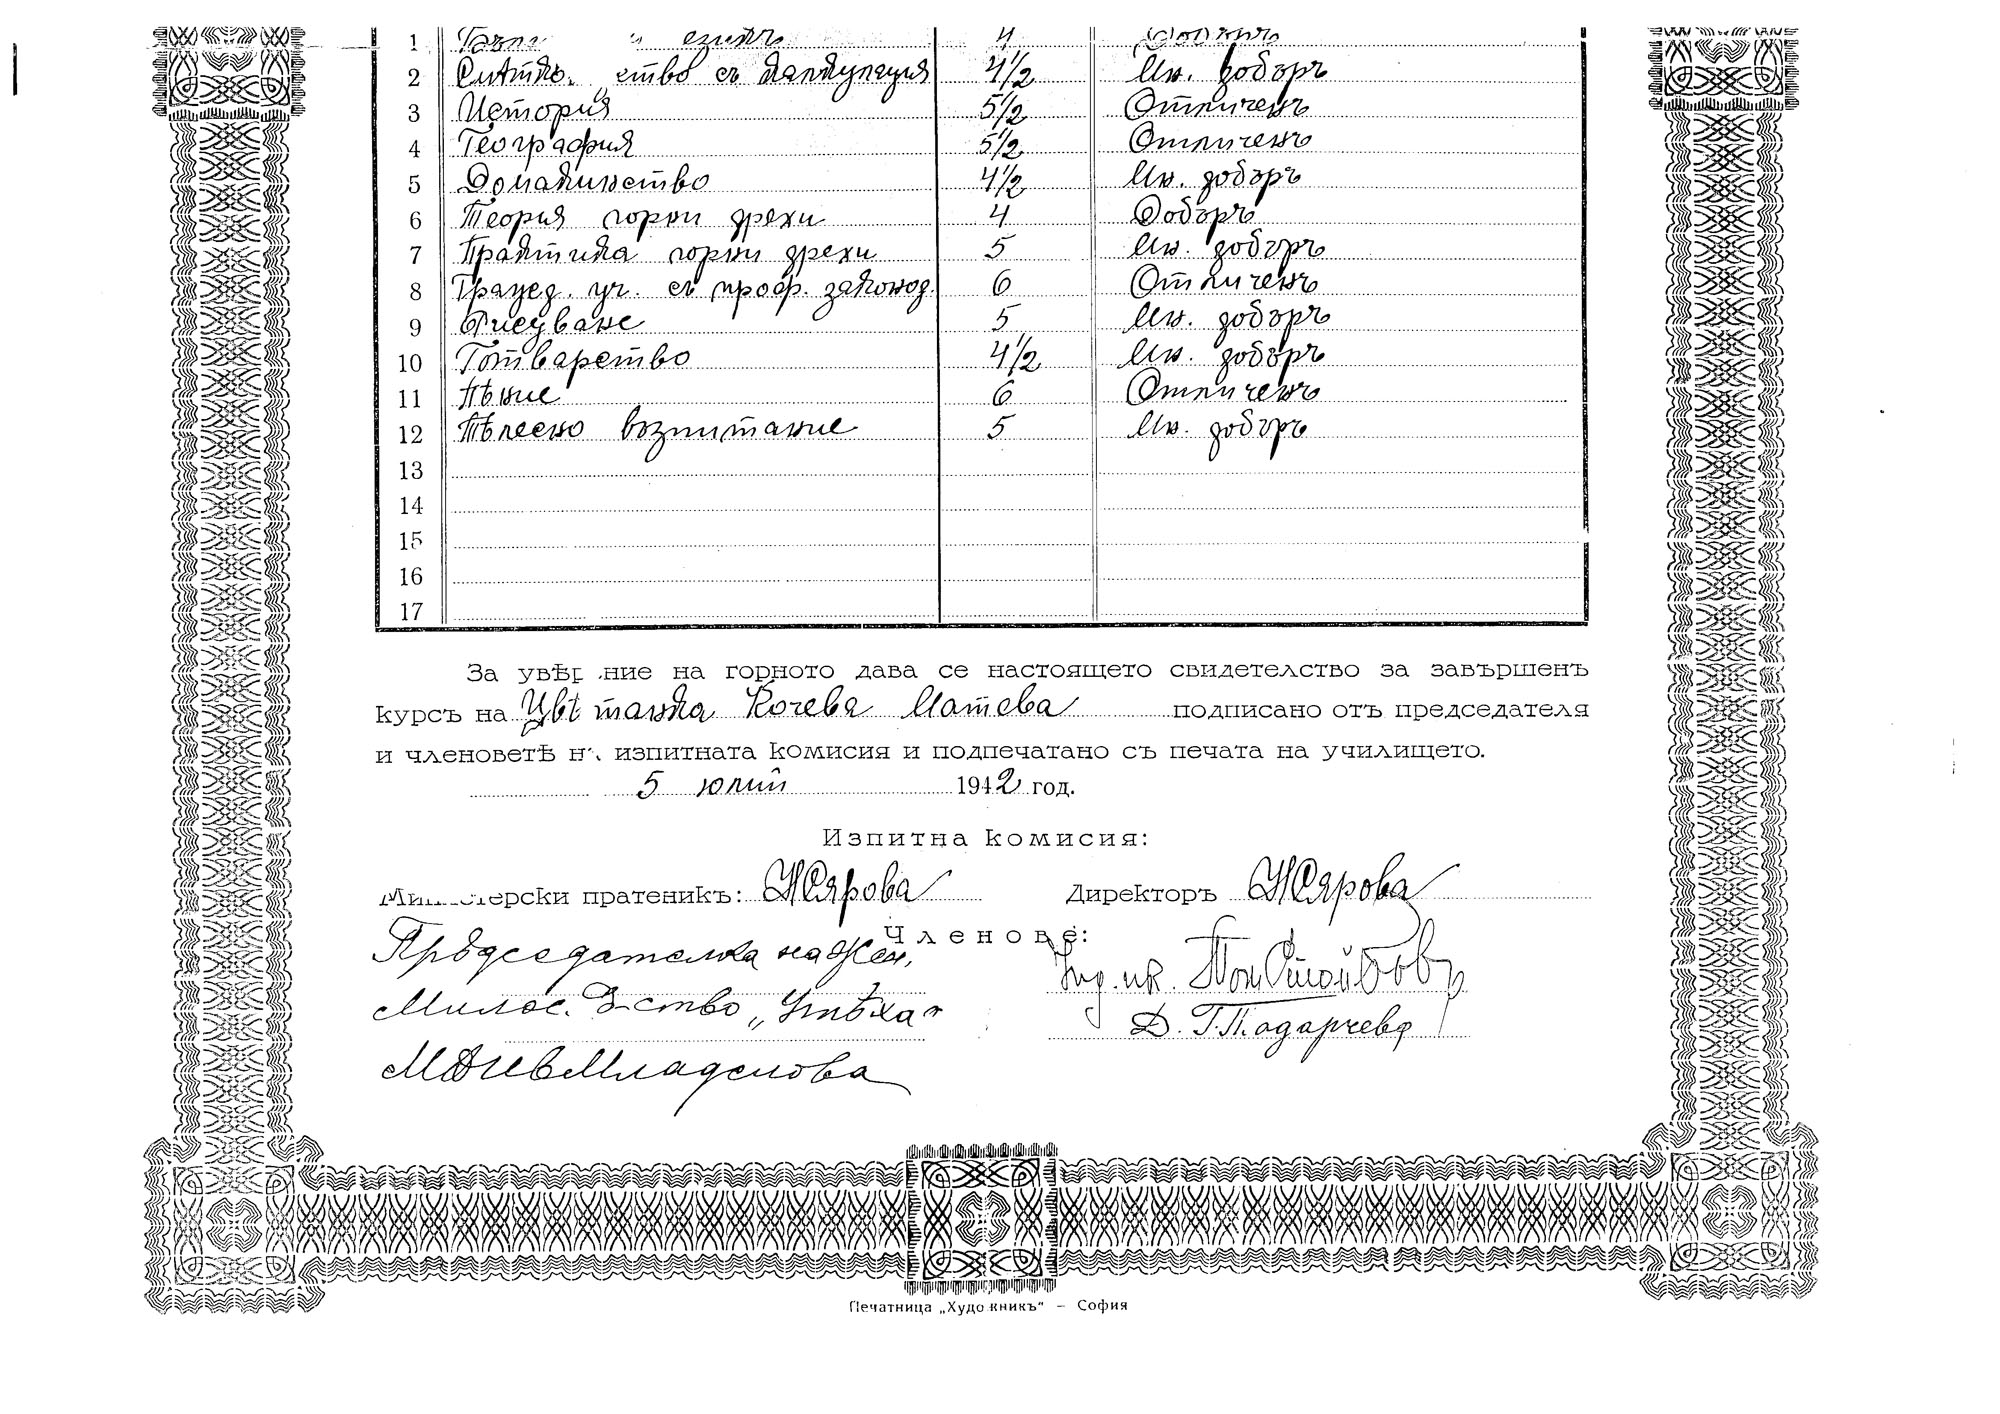 1 езикъ 4
2 ство съ калкулация 4 1/2 Мн. добъръ
3 История 5 1/2 Отличенъ
4 География 5 1/2 Отличенъ
5 Домакинство 4 1/2 Мн. добъръ
6 Теория горни дрехи 4 Добъръ
7 Практика горни дрехи 5 Мн. добъръ
8 Гражд. уч. съ проф. законод. 6 Отличенъ
9 Рисуване 5 Мн. добъръ
10 Готварство 4 1/2 Мн. добъръ
11 Пѣние 6 Отличенъ
12 Тѣлесно возпитание 5 Мн. добъръ
13
14
15
16
17
За увѣр ние на горното дава се настоящето свидетелство за завършенъ
курсъ на Цвѣтанка Кочева Матева подписано отъ председателя
и членоветѣ н изпитната комисия и подпечатано съ печата на училището.
5 юлий 1942 год.
Изпитна комисия:
Министерски пратеникъ: НСярова Директоръ НСярова
Членове:
Прѣдседателка на Жен.
Милос. Д-ство „Утѣха"
Младенова
Д. Г. Падарчева
Печатница „Худо никъ" – София